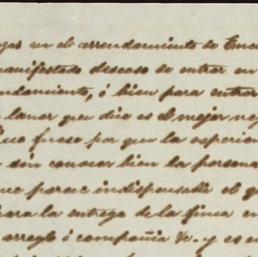 en el arrendamiento de
manifestado deseoso de entrar en
ndamiento, ó bien para entrar
lanar que dice es el mejor ne
fuese por que la esperien
sin conocer bien la persona
me parece indispensable el q
para la entrega de la finca en
arreglo ó compañia &c. y es en